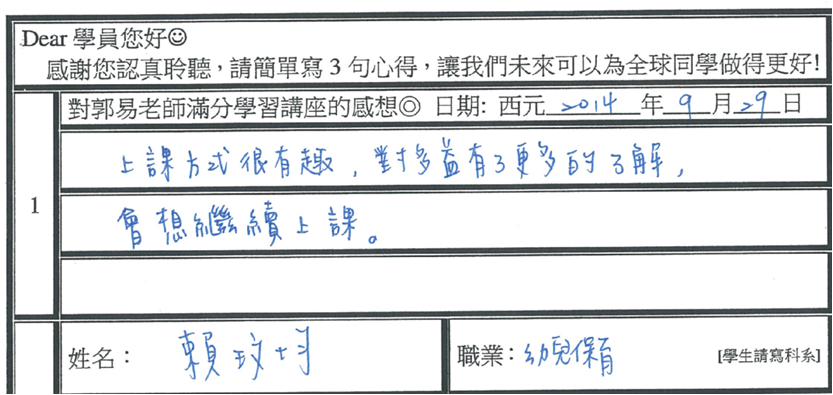 Dear 學員您好☺
感謝您認真聆聽，請簡單寫 3 句心得，讓我們未來可以為全球同學做得更好!
對郭易老師滿分學習講座的感想◎ 日期: 西元 2014 年 9 月 29 日
1
上課方式很有趣，對多益有了更多的了解，
會想繼續上課。
姓名： 賴玟
職業：幼兒保育 [學生請寫科系]